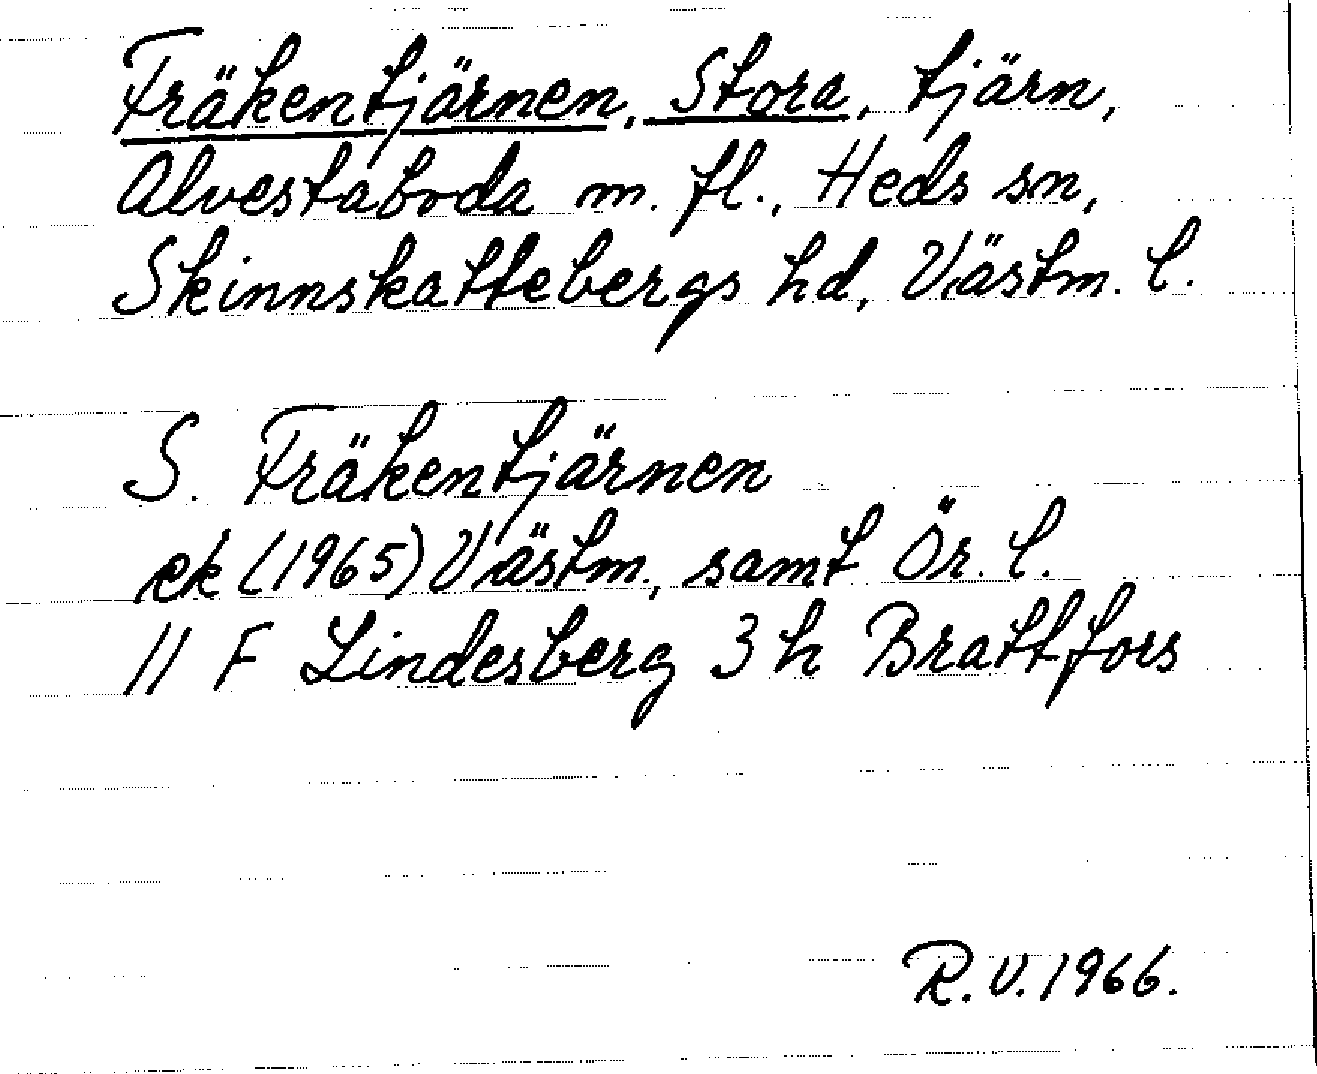 Fräkentjärnen, Stora, tjärn,
Alvestaboda m. fl., Heds sn,
Skinnskattebergs hd, Västm. l.
S. Fräkentjärnen
ek (1965) Västm., samt Ör. l.
11 F Lindesberg 3 h Brattfors
R.V. 1966.